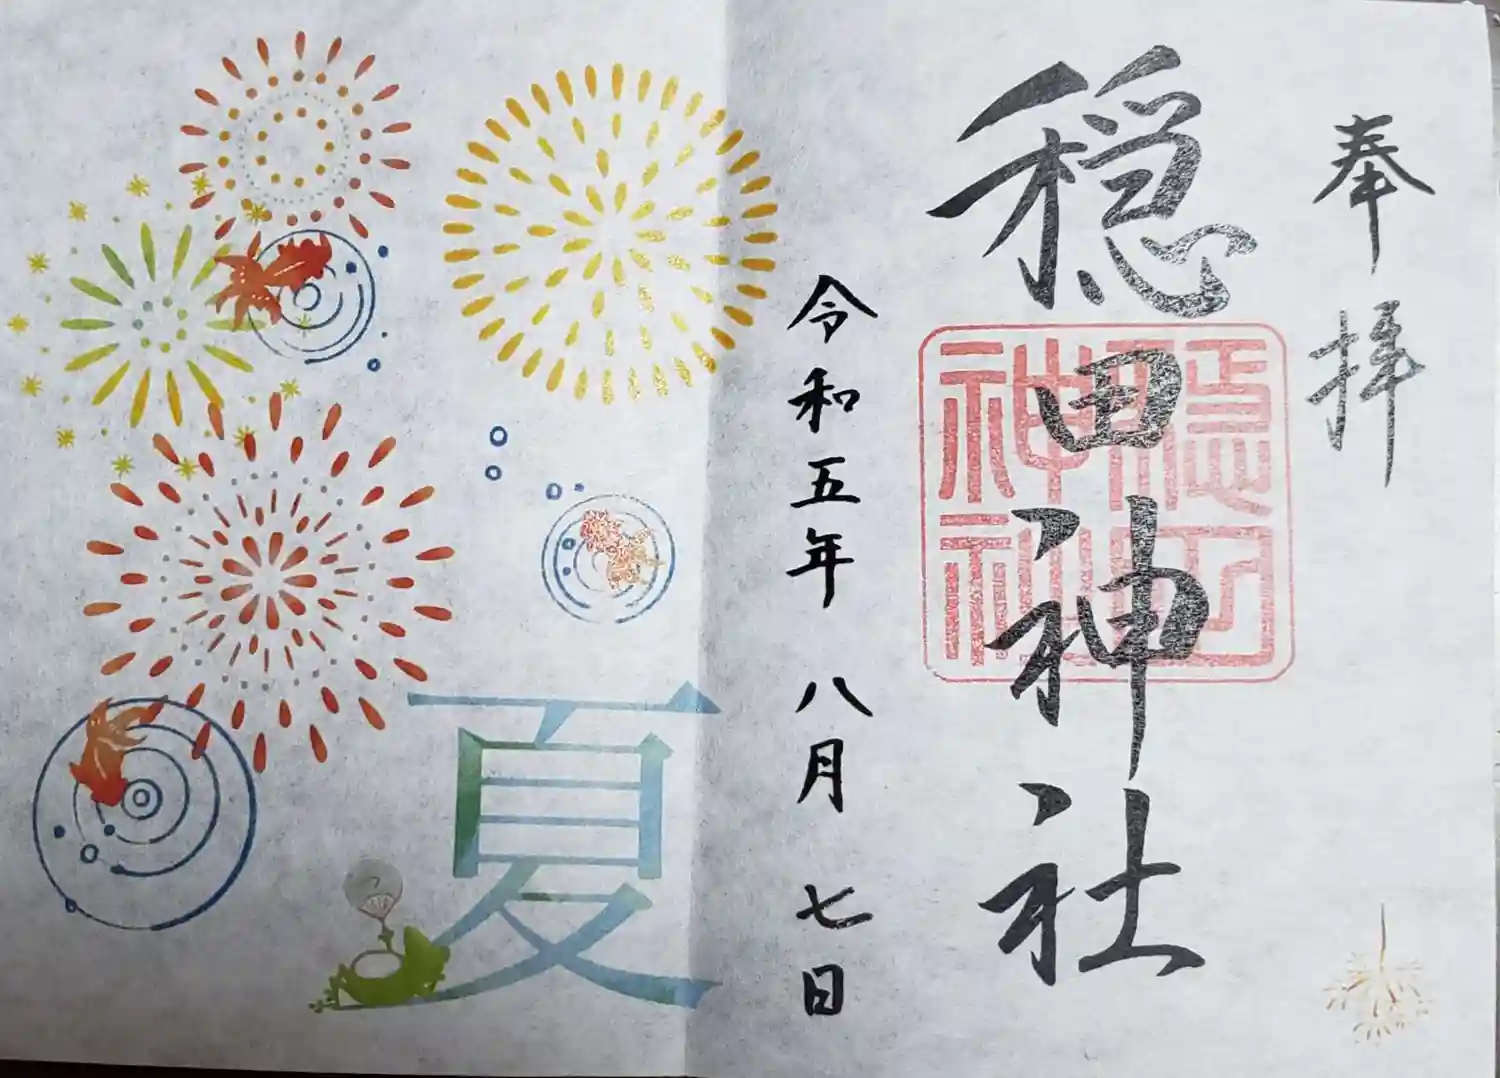 奉拝
穏田神社
穏田神社
令和五年八月七日
夏